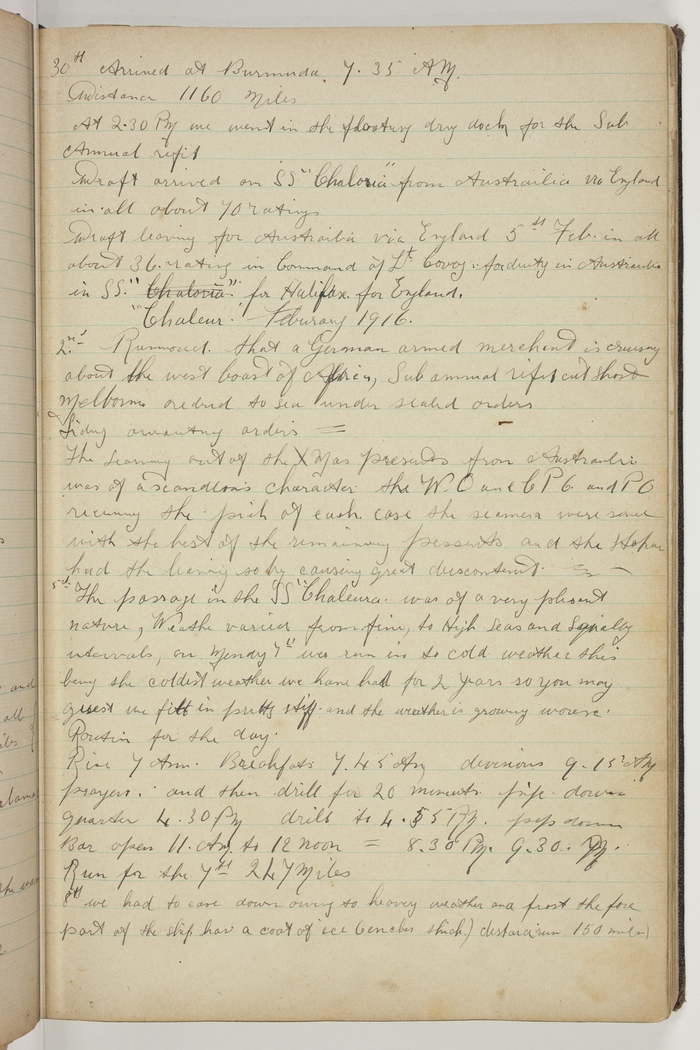 30th Arrived at Burmuda. 7.35 AM.
Distance 1160 Miles
At 2.30 PM we went in the floating dry dock for the Sub
Annual refit
Draft arrived on SS "Chaloria" from Austrailia via England
in all about 70 ratings
Draft leaving for Austrailia via England 5th Feb. in all
about 36 rating in Command of Lt for duty in Austrailia
in SS. "Chaloria" for Halifax for England.
"Chaleur. Feburary 1916.
2nd Rumoured. that a German armed merchend is crusing
about the west coast of Africa, Sub annual refit cut short
Melborne ordred to sea under sealed orders
Sidny awaiting orders =
The searving out of the XMas presents from Austrailia
was of a scandlous character the W.O and C P O and P O
reciving the pick of each case the seamen were served
with the best of the remaining pessents and the Stokers
had the leavings so by causing great discontent.
5th The passage in the SS "Chaleura. was of a very plesent
nature, Weathe varied from fine, to High Seas and Squally
intervals, on Mondy 7th we run in to cold weather this
being the coldest weather we have had for 2 years so you may
guest we felt in pretty stiff and the weather is growing worse.
Routin for the day.
Rise 7 Am. Breakfast 7.45 Am divisions 9.15 AM
prayers. and then drill for 20 minuets. pipe down
quarter 4.30 PM drill to 4.55 PM. pipe down
Bar open 11. AM to 12 noon = 8.30 PM. 9.30. PM.
Run for the 7th 247 Miles
8th we had to eave down owing to heavey weather and frost the fore
part of the ship has a coat of ice 6 inches thick) distance run 150 miles)